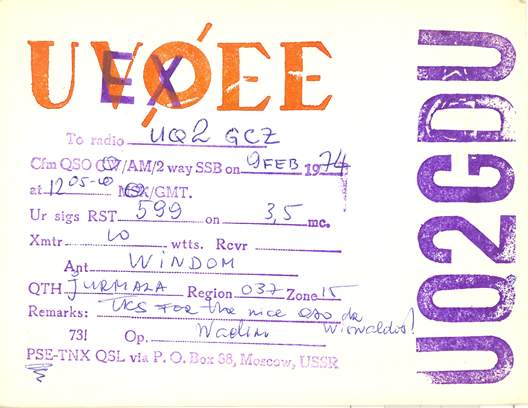 UVØEE
EX
UQ2GDU
To radio UQ2 GCZ
Cfm QSO CW/AM/2 way SSB on 9 FEB 1974
at 12 05-10 MSK/GMT.
Ur sigs RST 599 on 3,5 mc.
Xmtr 10 wtts. Rcvr
Ant WINDOM
QTH JURMALA Region 037 Zone 15
Remarks: TKS FOR the nice QSO dr
73! Op. Wadim
PSE-TNX QSL via P. O. Box 88, Moscow, USSR